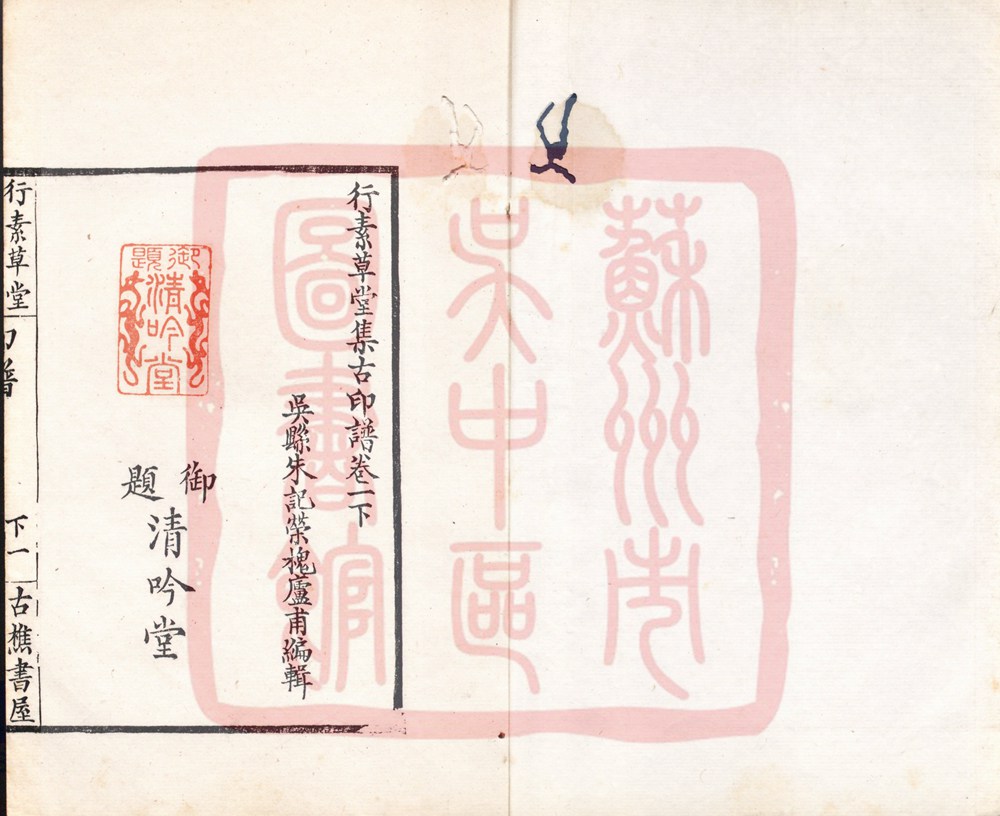 蘇州市
吳中區
圖書館
行素草堂集古印譜卷一下
吳縣朱記榮槐廬甫編輯
御題
清吟堂
御題
清吟堂
行素草堂
印譜
下一
古樵書屋